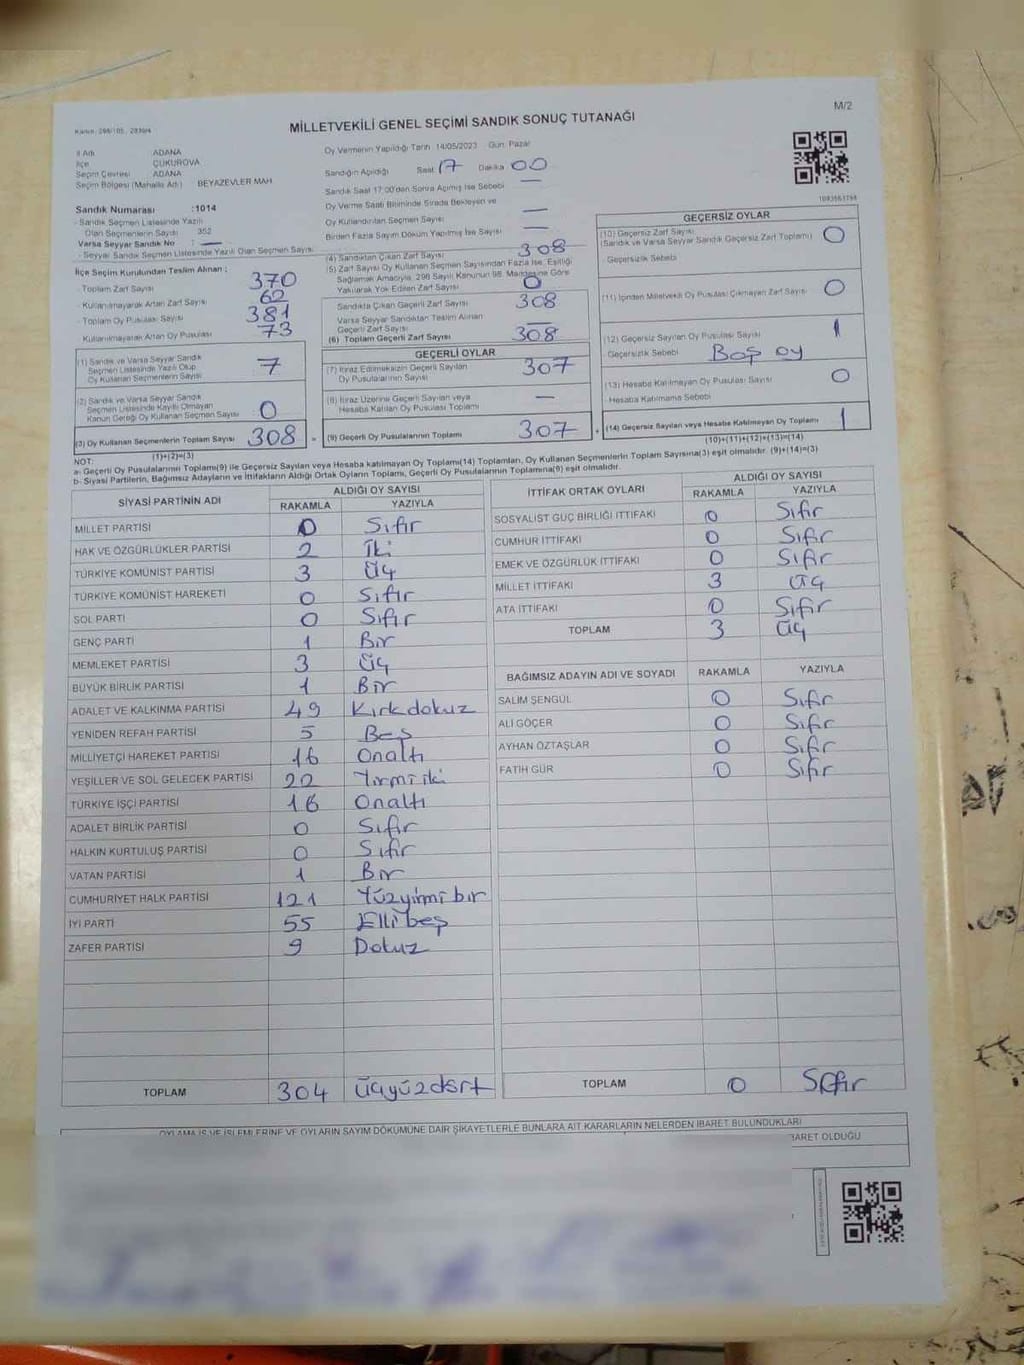 M/2
Kanun: 298/105, 2839/4
MİLLETVEKİLİ GENEL SEÇİMİ SANDIK SONUÇ TUTANAĞI
İl Adı ADANA
İlçe ÇUKUROVA
Seçim Çevresi ADANA
Seçim Bölgesi (Mahalle Adı) BEYAZEVLER MAH
Sandık Numarası :1014
- Sandık Seçmen Listesinde Yazılı
Olan Seçmenlerin Sayısı 352
Varsa Seyyar Sandık No : —
- Seyyar Sandık Seçmen Listesinde Yazılı Olan Seçmen Sayısı
İlçe Seçim Kurulundan Teslim Alınan ;
- Toplam Zarf Sayısı 370
- Kullanılmayarak Artan Zarf Sayısı 62
- Toplam Oy Pusulası Sayısı 381
Kullanılmayarak Artan Oy Pusulası 73
(1) Sandık ve Varsa Seyyar Sandık
Seçmen Listesinde Yazılı Olup
Oy Kullanan Seçmenlerin Sayısı 7
(2) Sandık ve Varsa Seyyar Sandık
Seçmen Listesinde Kayıtlı Olmayan
Kanun Gereği Oy Kullanan Seçmen Sayısı 0
(3) Oy Kullanan Seçmenlerin Toplam Sayısı 308
(1)+(2)=(3)
Oy Vermenin Yapıldığı Tarih 14/05/2023 Gün: Pazar
Sandığın Açıldığı Saat 17 Dakika 00
Sandık Saat 17:00'den Sonra Açılmış İse Sebebi —
Oy Verme Saati Bitiminde Sırada Bekleyen ve
Oy Kullandırılan Seçmen Sayısı —
Birden Fazla Sayım Döküm Yapılmış İse Sayısı —
(4) Sandıktan Çıkan Zarf Sayısı 308
(5) Zarf Sayısı Oy Kullanan Seçmen Sayısından Fazla İse, Eşitliği
Sağlamak Amacıyla, 298 Sayılı Kanunun 98. Maddesine Göre
Yakılarak Yok Edilen Zarf Sayısı 0
Sandıkta Çıkan Geçerli Zarf Sayısı 308
Varsa Seyyar Sandıktan Teslim Alınan
Geçerli Zarf Sayısı —
(6) Toplam Geçerli Zarf Sayısı 308
GEÇERLİ OYLAR
(7) İtiraz Edilmeksizin Geçerli Sayılan
Oy Pusulalarının Sayısı 307
(8) İtiraz Üzerine Geçerli Sayılan veya
Hesaba Katılan Oy Pusulası Toplamı —
= (9) Geçerli Oy Pusulalarının Toplamı 307 +
1093563798
GEÇERSİZ OYLAR
(10) Geçersiz Zarf Sayısı
(Sandık ve Varsa Seyyar Sandık Geçersiz Zarf Toplamı) 0
- Geçersizlik Sebebi
(11) İçinden Milletvekili Oy Pusulası Çıkmayan Zarf Sayısı 0
(12) Geçersiz Sayılan Oy Pusulası Sayısı 1
Geçersizlik Sebebi Boş oy
(13) Hesaba Katılmayan Oy Pusulası Sayısı 0
- Hesaba Katılmama Sebebi
(14) Geçersiz Sayılan veya Hesaba Katılmayan Oy Toplamı 1
(10)+(11)+(12)+(13)=(14)
NOT:
a- Geçerli Oy Pusulalarının Toplamı(9) ile Geçersiz Sayılan veya Hesaba katılmayan Oy Toplamı(14) Toplamları, Oy Kullanan Seçmenlerin Toplam Sayısına(3) eşit olmalıdır. (9)+(14)=(3)
b- Siyasi Partilerin, Bağımsız Adayların ve İttifakların Aldığı Oyların Toplamı, Geçerli Oy Pusulalarının Toplamına(9) eşit olmalıdır.
SİYASİ PARTİNİN ADI ALDIĞI OY SAYISI
RAKAMLA YAZIYLA
MİLLET PARTİSİ 0 Sıfır
HAK VE ÖZGÜRLÜKLER PARTİSİ 2 İki
TÜRKİYE KOMÜNİST PARTİSİ 3 Üç
TÜRKİYE KOMÜNİST HAREKETİ 0 Sıfır
SOL PARTİ 0 Sıfır
GENÇ PARTİ 1 Bir
MEMLEKET PARTİSİ 3 Üç
BÜYÜK BİRLİK PARTİSİ 1 Bir
ADALET VE KALKINMA PARTİSİ 49 Kırkdokuz
YENİDEN REFAH PARTİSİ 5 Beş
MİLLİYETÇİ HAREKET PARTİSİ 16 Onaltı
YEŞİLLER VE SOL GELECEK PARTİSİ 22 Yirmi iki
TÜRKİYE İŞÇİ PARTİSİ 16 Onaltı
ADALET BİRLİK PARTİSİ 0 Sıfır
HALKIN KURTULUŞ PARTİSİ 0 Sıfır
VATAN PARTİSİ 1 Bir
CUMHURİYET HALK PARTİSİ 121 Yüzyirmi bir
İYİ PARTİ 55 Elli beş
ZAFER PARTİSİ 9 Dokuz
TOPLAM 304 Üçyüzdört
İTTİFAK ORTAK OYLARI ALDIĞI OY SAYISI
RAKAMLA YAZIYLA
SOSYALİST GÜÇ BİRLİĞİ İTTİFAKI 0 Sıfır
CUMHUR İTTİFAKI 0 Sıfır
EMEK VE ÖZGÜRLÜK İTTİFAKI 0 Sıfır
MİLLET İTTİFAKI 3 Üç
ATA İTTİFAKI 0 Sıfır
TOPLAM 3 Üç
BAĞIMSIZ ADAYIN ADI VE SOYADI RAKAMLA YAZIYLA
SALİM ŞENGÜL 0 Sıfır
ALİ GÖÇER 0 Sıfır
AYHAN ÖZTAŞLAR 0 Sıfır
FATİH GÜR 0 Sıfır
TOPLAM 0 Sıfır
OYLAMA İŞ VE İŞLEMLERİNE VE OYLARIN SAYIM DÖKÜMÜNE DAİR ŞİKAYETLERLE BUNLARA AİT KARARLARIN NELERDEN İBARET BULUNDUKLARI
İBARET OLDUĞU